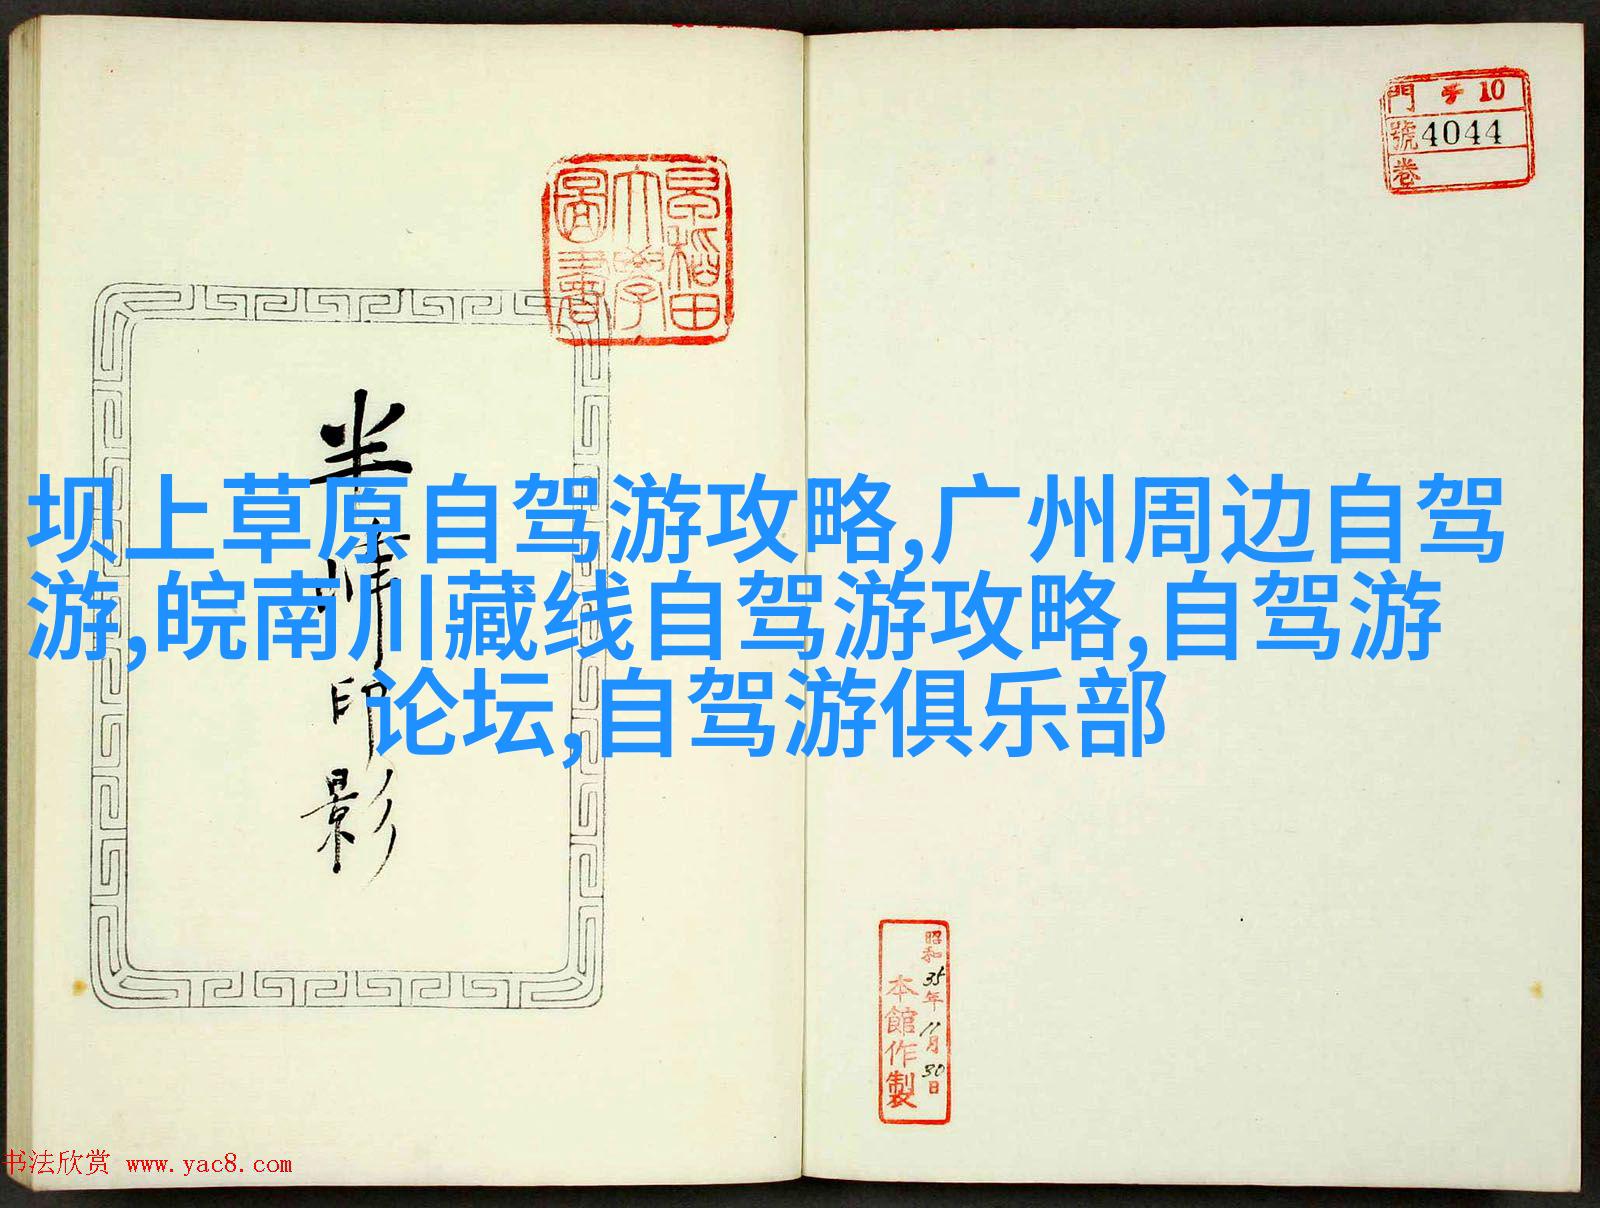 門 チ 10
號 4044
卷
早稲田
大學
圖書
半
印
影
坝上草原自驾游攻略,广州周边自驾
游,皖南川藏线自驾游攻略,自驾游
论坛,自驾游俱乐部
昭和35年11月30日
本館作製
书法欣赏 www.yac8.com